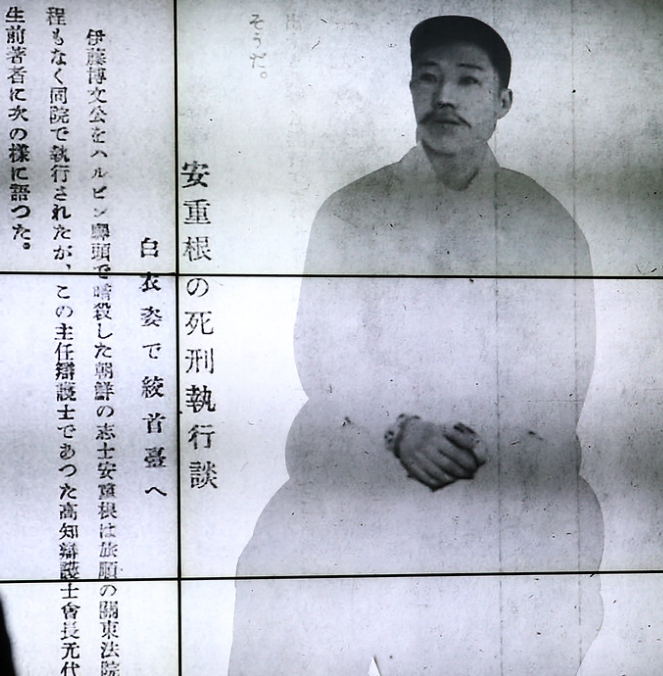 そうだ。
安重根の死刑執行談
白衣姿で絞首臺へ
伊藤博文公をハルビン驛頭で暗殺した朝鮮の志士安重根は旅順の關東法院
程もなく同院で執行されたが、この主任辯護士であつた高知辯護士會長元代
生前著者に次の様に語つた。